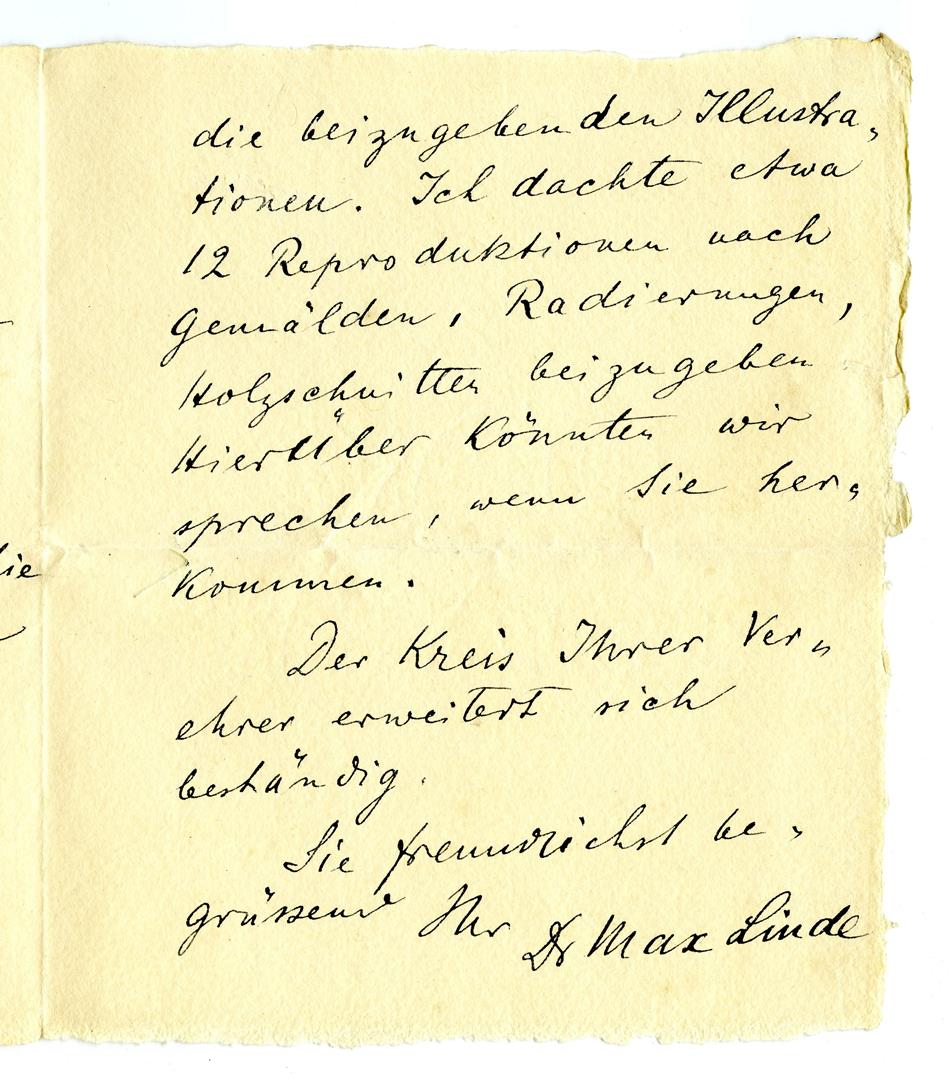 die beizugebenden Illustra„
tionen. Ich dachte etwa
12 Reproduktionen nach
Gemälden, Radierungen,
Holzschnitten beizugeben
Hierüber könnten wir
sprechen, wenn Sie her„
kommen.
Der Kreis Ihrer Ver„
ehrer erweitert sich
beständig.
Sie freundlichst be„
grüssend Ihr Dr Max Linde